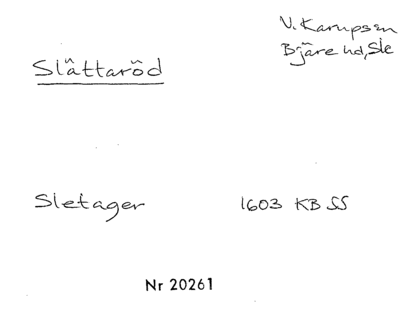 Slättaröd
V. Karupssn
Bjäre hd, Sle
Sletager 1603 KB SS
Nr 20261